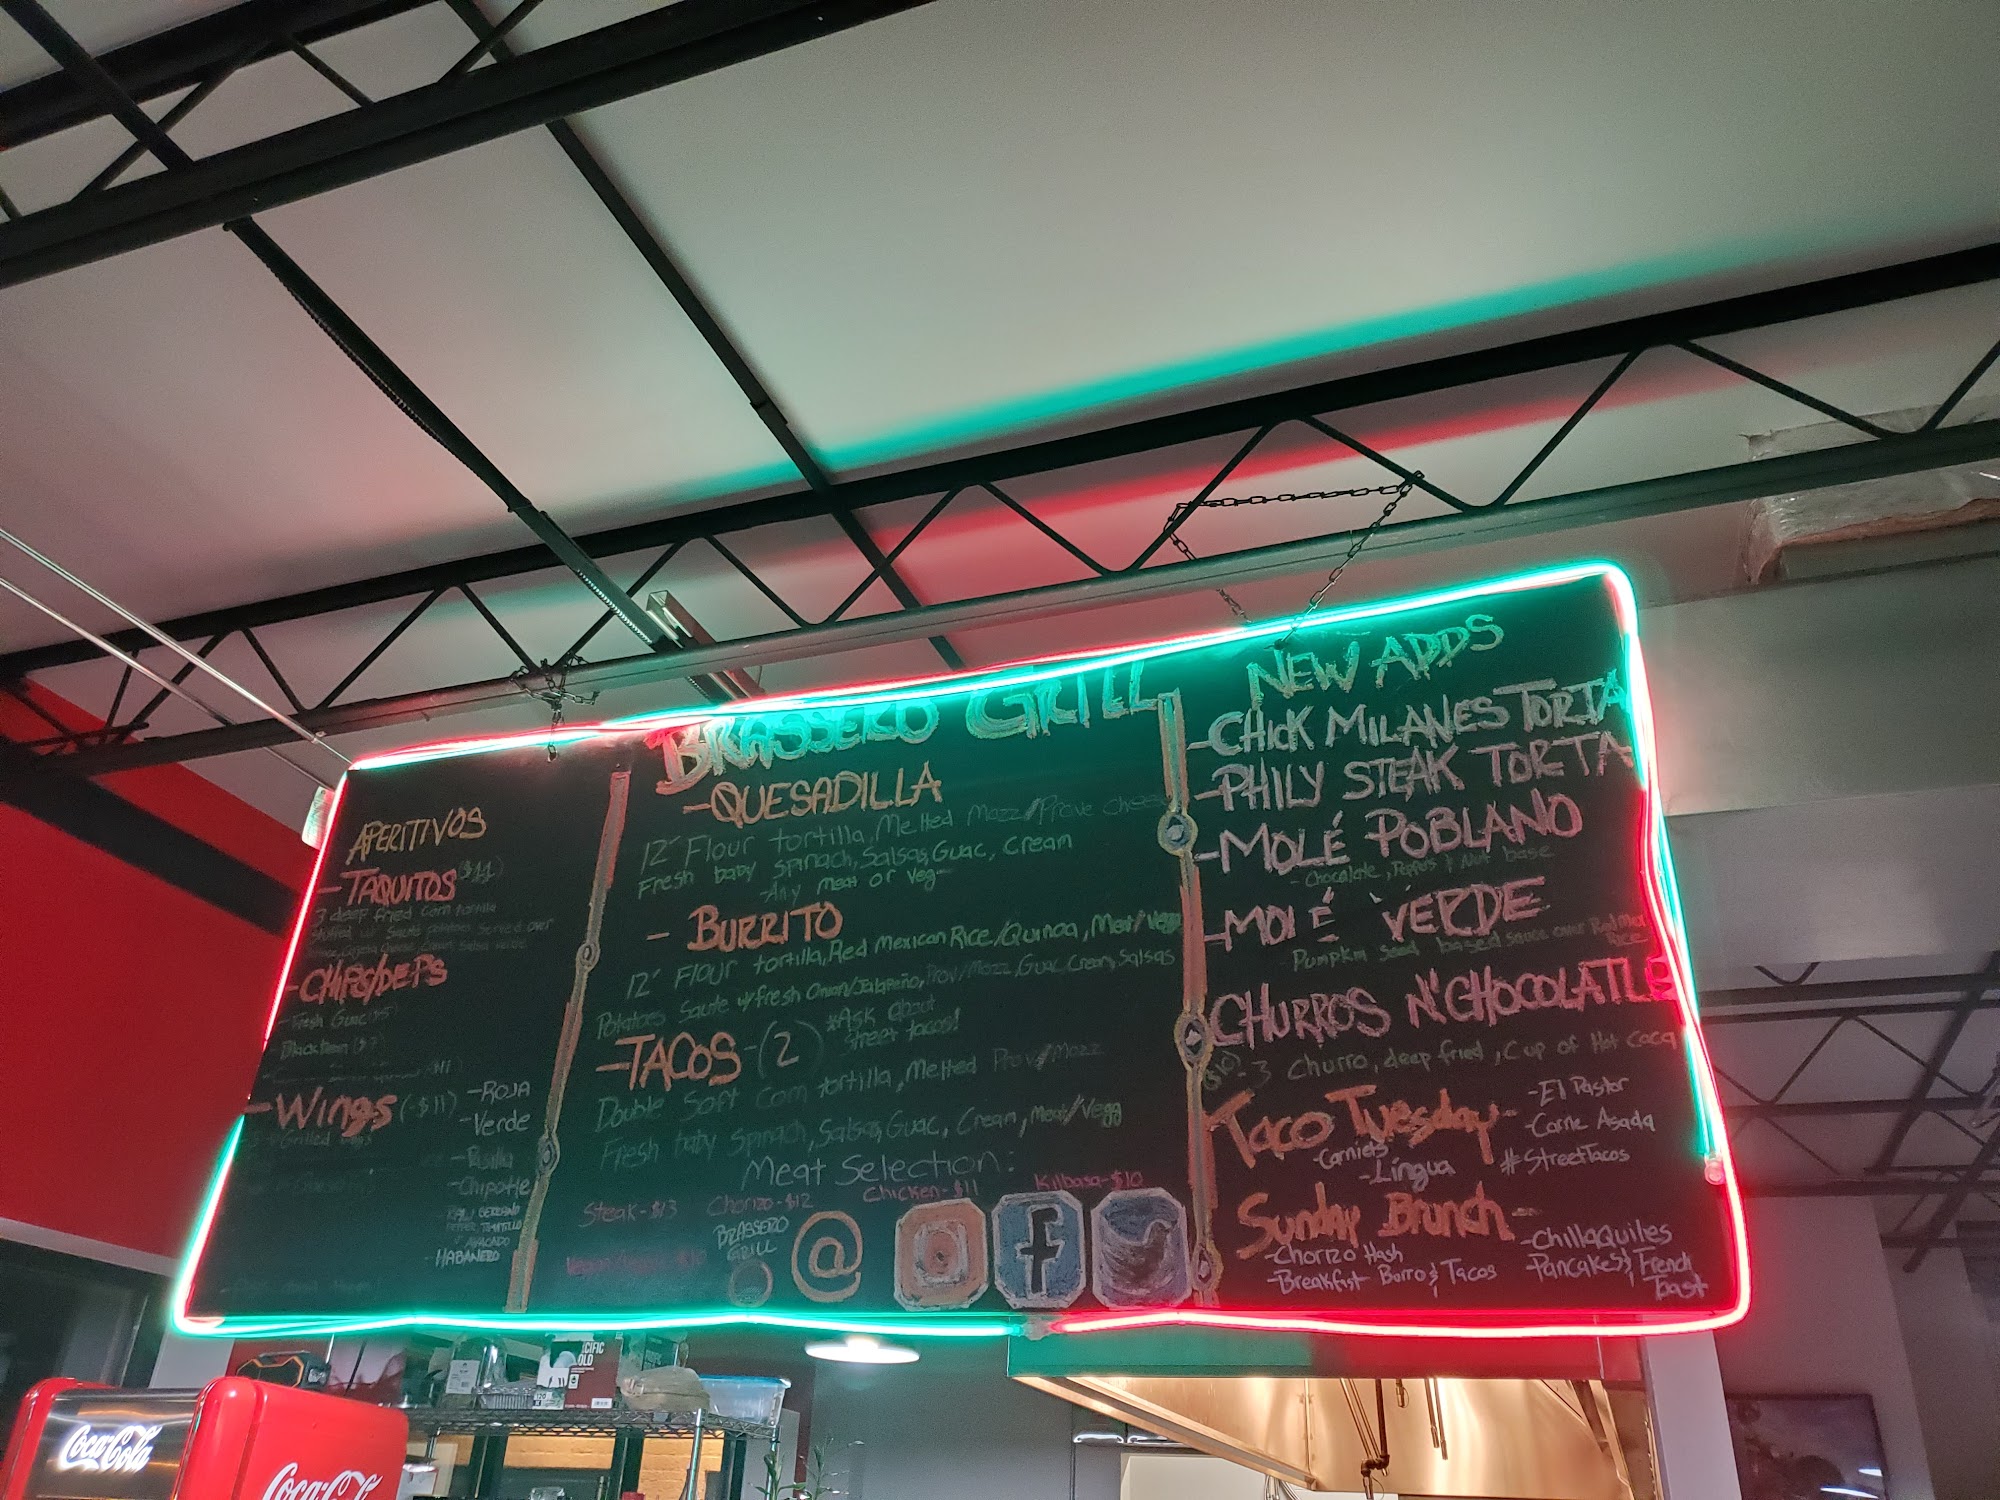 BRASSERO GRILL
APERITIVOS
-TAQUITOS ($11)
3 deep fried corn tortilla
stuffed w/ Sauté potatoes served over
-CHIPS/DIPS
-Fresh Guac ($5)
-Black bean ($7)
-WINGS (-$11)
-ROJA
-Verde
-Pasilla
-Chipotle
-HABANERO
-QUESADILLA
12" Flour tortilla, Melted Mozz/Prove cheese
Fresh baby spinach, Salsas, Guac, Cream
-Any meat or veg-
-BURRITO
12" Flour tortilla, Red Mexican Rice/Quinoa, Meat/Vegg
Potatoes Saute w/fresh Onion/Jalapeño, Prov/Mozz, Guac, Cream, Salsas
-TACOS-(2)
*Ask about
street tacos!
Double Soft Corn tortilla, Melted Prov/Mozz
Fresh baby spinach, Salsas, Guac, Cream, Meat/Vegg
Meat Selection:
Steak-$13 Chorizo-$12 Chicken-$11 Kilbasa-$10
BRASSERO
GRILL
@
f
NEW ADDS
-CHICK MILANES TORTA
-PHILY STEAK TORTA
-MOLÉ POBLANO
-Chocolate, Peppers & Nut base
-MOLÉ VERDE
Pumpkin seed based sauce over Red Mex
Rice
CHURROS N' CHOCOLATLE
-3 Churro, deep fried, Cup of Hot Coca
Taco Tuesday-
-El Pastor
-Carne Asada
-Carniets
-Lingua
#StreetTacos
Sunday Brunch-
-Chorizo Hash
-Breakfast Burro & Tacos
-ChillaQuiles
-Pancakes & French
Toast
Coca-Cola
Coca-Cola